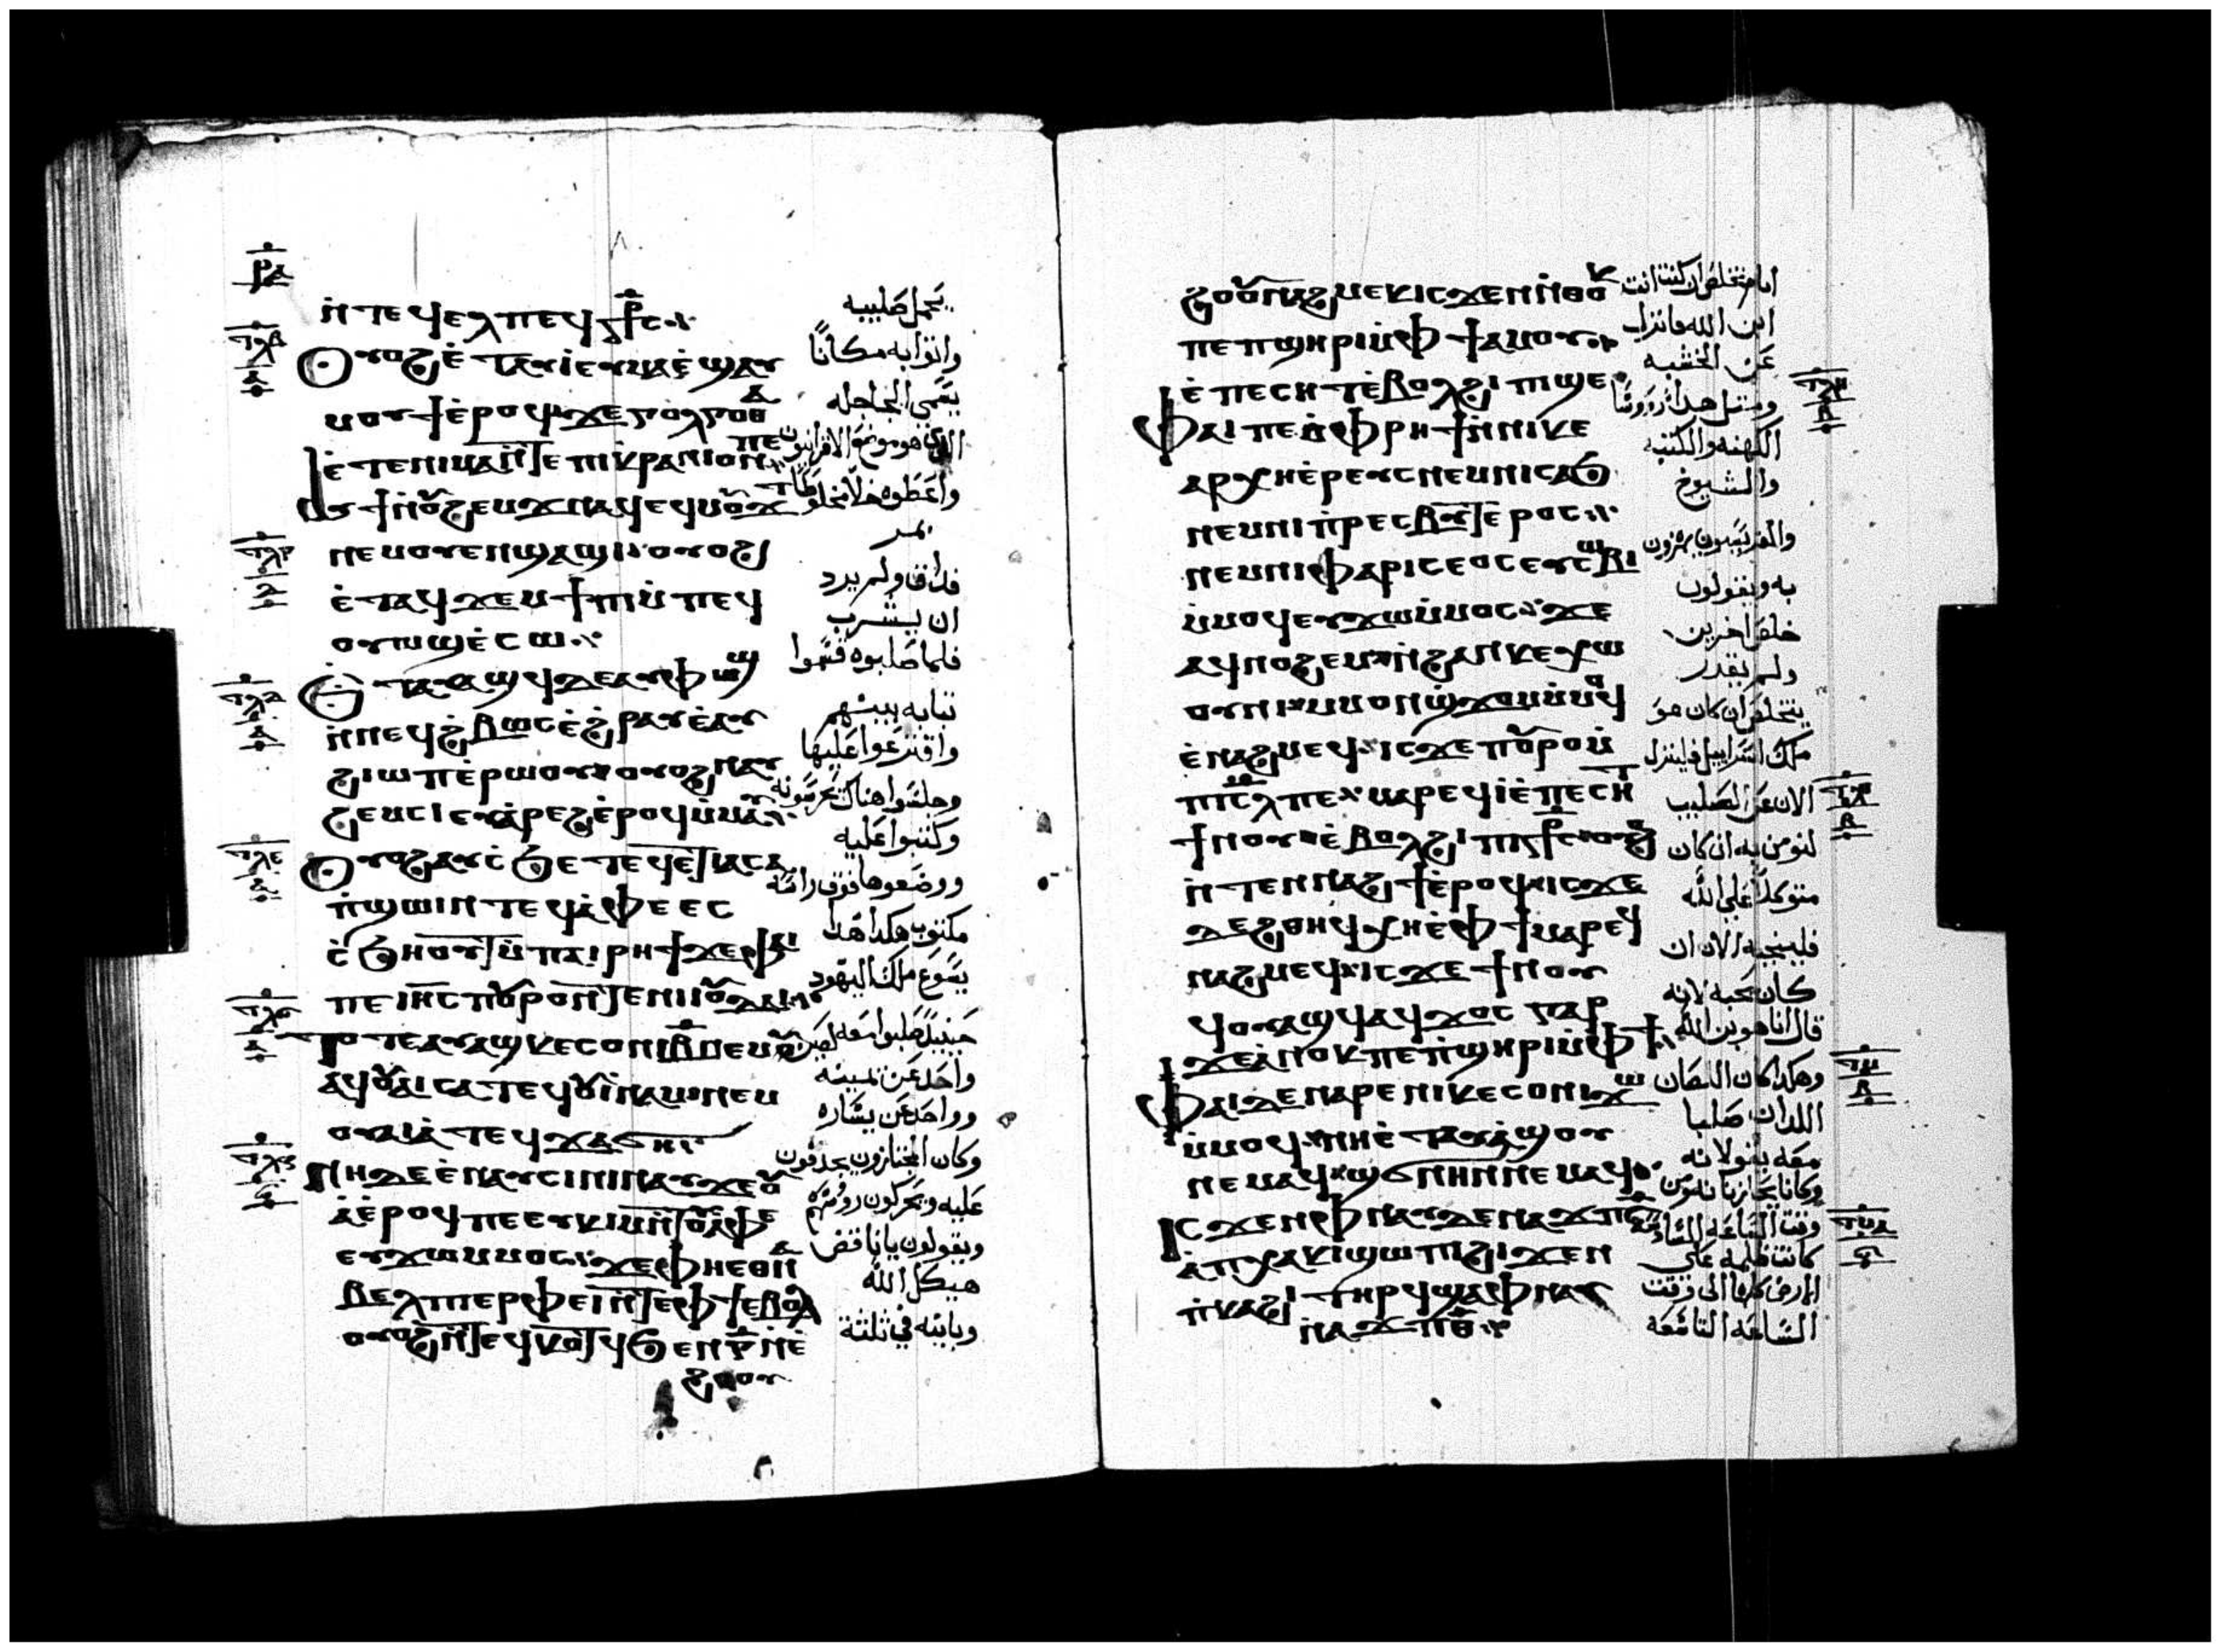 ⲣⲁ
ⲛ̀ⲧⲉϥⲉⲗⲡⲉϥⲥ̅ⲧ̅ⲥ
ⲟⲩⲟϩⲉ̀ⲧⲁⲩⲓ̀ⲉⲩⲙⲁⲉ̀ϣⲁⲩ
ⲙⲟⲩϯⲉ̀ⲣⲟϥϫⲉⲅⲟⲗⲅⲟⲑⲁ
ⲉ̀ⲧⲉⲡⲓⲙⲁⲛ̀ⲧⲉⲡⲓⲕⲣⲁⲛⲓⲟⲛⲡⲉ
ⲁⲩϯⲛ̀ⲟⲩϩⲉⲙϫⲛⲁϥⲉϥⲙⲟϫⲧ
ⲛⲉⲙⲟⲩⲉⲛϣⲁϣⲓⲟⲩⲟϩ
ⲉ̀ⲧⲁϥϫⲉⲙϯⲡⲓⲙ̀ⲡⲉϥ
ⲟⲩⲱϣⲉ̀ⲥⲱ
ⲉ̀ⲧⲁⲩⲁϣϥⲇⲉⲁⲩⲫⲱϣ
ⲛ̀ⲛⲉϥϩ̀ⲃⲱⲥⲉ̀ϩ̀ⲣⲁⲩⲉ̀ⲁⲩ
ϩⲓⲱⲡⲉ̀ⲣⲱⲟⲩⲟⲩⲟϩⲛⲁⲩ
ϩⲉⲙⲥⲓⲉⲩⲁ̀ⲣⲉϩⲉ̀ⲣⲟϥⲙ̀ⲙⲁⲩ
ⲟⲩⲟϩⲁⲩⲥ̀ϧⲉⲧⲉϥⲉ̀ⲧⲓⲁⲥⲁ
ⲡ̀ϣⲱⲓⲛ̀ⲧⲉϥⲁ̀ⲫⲉⲉⲥ
ⲥ̀ϧⲏⲟⲩⲧⲙ̀ⲡⲁⲓⲣⲏϯϫⲉⲫⲁⲓ
ⲡⲉⲓⲏⲥⲡⲟⲩⲣⲟⲛ̀ⲧⲉⲛⲓⲓⲟⲩⲇⲁⲓ
ⲧⲟⲧⲉⲁⲩⲁϣⲕⲉⲥⲟⲛⲓⲃ̅ⲛⲉⲙⲁϥ
ⲁϥⲟⲩⲁⲓⲥⲁⲧⲉϥⲟⲩⲓ̀ⲛⲁⲙⲛⲉⲙ
ⲟⲩⲁⲓⲥⲁ̀ⲧⲉϥϫⲁϭⲏ
ⲛⲏⲇⲉⲉ̀ⲛⲁⲩⲥⲓⲛⲓⲛⲁⲩϫⲉⲟⲩ
ⲁ̀ⲉ̀ⲣⲟϥⲡⲉⲉⲩⲕⲓⲙⲛ̀ⲧⲟⲩⲁ̀ⲫⲉ
ⲉⲩϫⲱⲙⲙⲟⲥϫⲉⲫⲏⲉⲑⲛⲁ
ⲃⲉⲗⲡⲓⲉⲣⲫⲉⲓⲛ̀ⲧⲉⲫϯⲉⲃⲟⲗ
ⲟⲩⲟϩⲛ̀ⲧⲉϥⲕⲟⲧϥϧⲉⲛⲅ̅ⲛ̀ⲉ̀
ϩⲟⲟⲩ
ⲧⲗⲃ
ⲁ
ⲧⲗⲅ
ⲇ
ⲧⲗⲇ
ⲁ
ⲧⲗⲉ
ⲁ
ⲧⲗⲋ
ⲁ
ⲧⲗⲍ
ⲋ
يحمل صليبه
واتوا به مكانًا
يسمى الجاجله
الذي هو موضع الاقرانيون
واعطوه خلا مخلوطًا
بمر
فذاق ولم يرد
ان يشرب
فلما صلبوه قسموا
ثيابه بينهم
واقترعوا عليها
وجلسوا هناك يحرسونه
وكتبوا عليه
ووضعوها فوق راسه
مكتوب هكدا هدا
يسوع ملك اليهود
حينيذ صلبوا معه لصين
واحد عن يمينه
وواحد عن يساره
وكان المجتازون يجدفون
عليه ويحركون رووسهم
ويقولون يا ناقض
هيكل الله
وبانيه في ثلثة
ϩⲟⲟⲩⲛⲁϩⲙⲉⲕⲓⲥϫⲉⲛ̀ⲑⲟⲕ
ⲡⲉⲡϣⲏⲣⲓⲙ̀ⲫϯⲁⲙⲟⲩ
ⲉ̀ⲡⲉⲥⲏⲧⲉ̀ⲃⲟⲗϩⲓⲡⲓϣⲉ
ⲫⲁⲓⲡⲉⲙ̀ⲫⲣⲏϯⲛ̀ⲛⲓⲕⲉ
ⲁⲣⲭⲏⲉ̀ⲣⲉⲩⲥⲛⲉⲙⲛⲓⲥⲁϧ
ⲛⲉⲙⲛⲓⲡ̀ⲣⲉⲥⲃⲩⲧⲉ̀ⲣⲟⲥ
ⲛⲉⲙⲛⲓⲫⲁⲣⲓⲥⲉⲟⲥⲉⲩⲥⲱⲃⲓ
ⲙ̀ⲙⲟϥⲉⲩϫⲱⲙ̀ⲙⲟⲥϫⲉ
ⲁϥⲛⲟϩⲉⲙⲛ̀ϩⲁⲛⲕⲉⲭⲱ
ⲟⲩⲛⲓⲙⲙⲟⲛϣ̀ϫⲟⲙⲙ̀ⲙⲟϥ
ⲉ̀ⲛⲁϩⲙⲉϥⲓⲥϫⲉⲡⲟⲩⲣⲟⲙ̀
ⲡⲓⲥ̅ⲗⲡⲉⲙⲁⲣⲉϥⲓ̀ⲉ̀ⲡⲉⲥⲏⲧ
ϯⲛⲟⲩⲉ̀ⲃⲟⲗϩⲓⲡⲓⲥ̅ⲧ̅ⲥⲟⲩⲟϩ
ⲛ̀ⲧⲉⲛⲛⲁϩϯⲉ̀ⲣⲟϥⲓⲥϫⲉ
ⲇⲉϩⲑⲏϥⲭⲏⲉ̀ⲫϯⲙⲁⲣⲉϥ
ⲛⲁϩⲙⲉϥⲓⲥϫⲉϯⲛⲟⲩ
ϥⲟⲩⲁϣϥⲁϥϫⲟⲥⲅⲁⲣ
ϫⲉⲁ̀ⲛⲟⲕⲡⲉⲡ̀ϣⲏⲣⲓⲙ̀ⲫϯ
ⲫⲁⲓⲇⲉⲛⲁⲣⲉⲛⲓⲕⲉⲥⲟⲛⲓϫⲱ
ⲙ̀ⲙⲟϥⲛⲏⲉ̀ⲧⲁⲩⲁ̀ϣⲟⲩ
ⲛⲉⲙⲁϥ
ⲓⲥϫⲉⲛⲫⲛⲁⲩⲇⲉⲛⲁϫⲡ
ⲁ̀ⲡⲭⲁⲕⲓϣⲱⲡⲓϩⲓϫⲉⲛ
ⲡ̀ⲕⲁϩⲓⲧⲏⲣϥϣⲁⲫⲛⲁⲩ
ⲛⲁϫⲡⲑ̅
ⲧⲗⲏ
ⲃ
ⲧⲗⲑ
ⲃ
ⲧⲙ
ⲃ
ⲧⲙⲁ
ⲋ
ايام تخلص ان كنت انت
ابن الله فانزل
عن الخشبه
ومثل هدا رووسا
الكهنه والكتبه
والشيوخ
والفريسيون يهزون
به ويقولون
خلص اخرين
ولم يقدر
يتخلص ان كان هو
ملك اسراييل فلينزل
الان عن الصليب
لنومن به ان كان
متوكلا على الله
فلينجيه الان ان
كان يحبه لانه
قال انا هو بن الله
وهكدا كان اللصان
اللدان صلبا
معه يقولانه
وقت الساعه السادسه
كانت ظلمه على
الارض كلها الى وقت
الساعه التاسعه